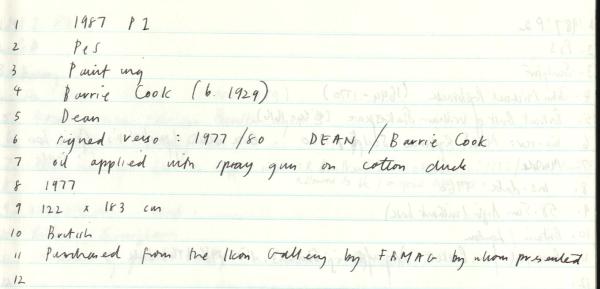 1 1987 P1
2 PeS
3 Painting
4 Barrie Cook (b. 1929)
5 Dean
6 signed verso : 1977/80 DEAN / Barrie Cook
7 oil applied with spray gun on cotton duck
8 1977
9 122 x 183 cm
10 British
11 Purchased from the Ikon Gallery by FBMAG by whom presented
12